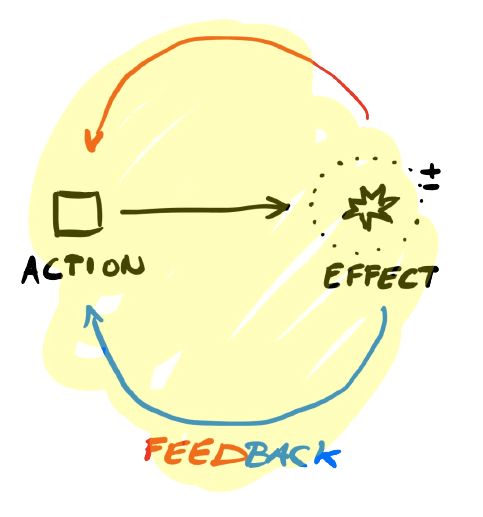 ±
ACTION
EFFECT
FEEDBACK